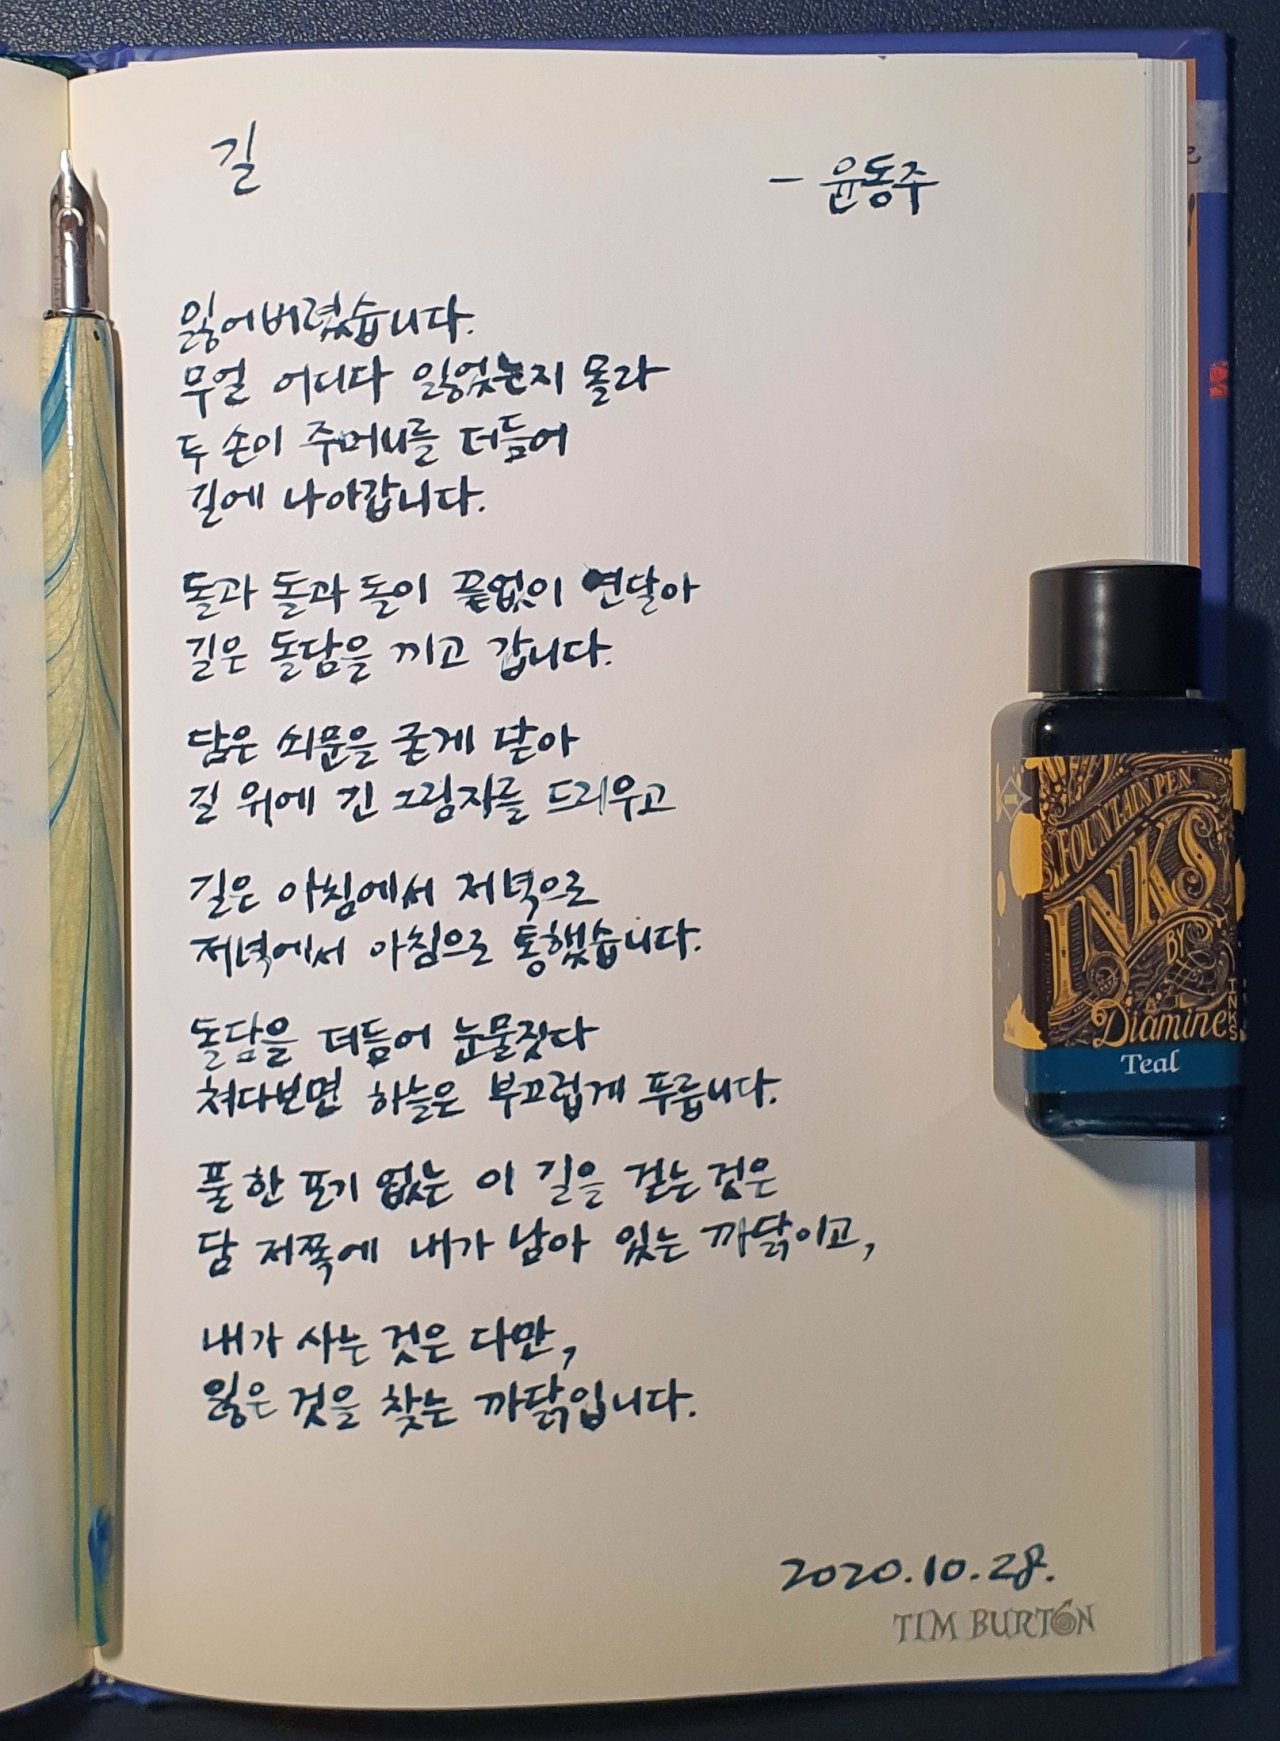 길
- 윤동주
잃어버렸습니다.
무얼 어디다 잃었는지 몰라
두 손이 주머니를 더듬어
길에 나아갑니다.
돌과 돌과 돌이 끝없이 연달아
길은 돌담을 끼고 갑니다.
담은 쇠문을 굳게 닫아
길 위에 긴 그림자를 드리우고
길은 아침에서 저녁으로
저녁에서 아침으로 통했습니다.
돌담을 더듬어 눈물짓다
쳐다보면 하늘은 부끄럽게 푸릅니다.
풀 한 포기 없는 이 길을 걷는 것은
담 저쪽에 내가 남아 있는 까닭이고,
내가 사는 것은 다만,
잃은 것을 찾는 까닭입니다.
2020.10.28.
TIM BURTON
FOUNTAIN PEN
INKS
BY
Diamine
INKS
Teal